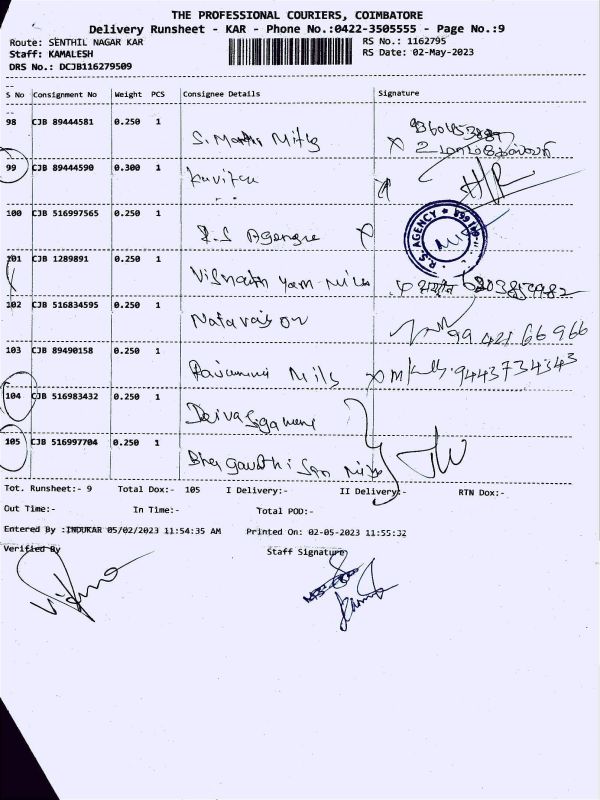 THE PROFESSIONAL COURIERS, COIMBATORE
Delivery Runsheet - KAR - Phone No.:0422-3505555 - Page No.:9
Route: SENTHIL NAGAR KAR
RS No.: 1162795
Staff: KAMALESH
RS Date: 02-May-2023
DRS No.: DCJB116279509
S No Consignment No Weight PCS Consignee Details Signature
98 CJB 89444581 0.250 1
Mills
99 CJB 89444590 0.300 1 Kavitha
100 CJB 516997565 0.250 1 R.S Agencie
R.S. AGENCY
101 CJB 1289891 0.250 1 Yarn Mills
102 CJB 516834595 0.250 1 Natarajan
99 421 66 966
103 CJB 89490158 0.250 1 Mills
9443734343
104 CJB 516983432 0.250 1 Deivasigamani
105 CJB 516997704 0.250 1 Mills
Tot. Runsheet:- 9 Total Dox:- 105 I Delivery:- II Delivery:- RTN Dox:-
Out Time:- In Time:- Total POD:-
Entered By :INDUKAR 05/02/2023 11:54:35 AM Printed On: 02-05-2023 11:55:32
Verified By Staff Signature